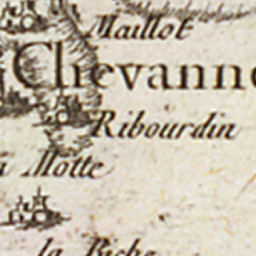 Maillot
Chevanne
Ribourdin
Motte
la Biche